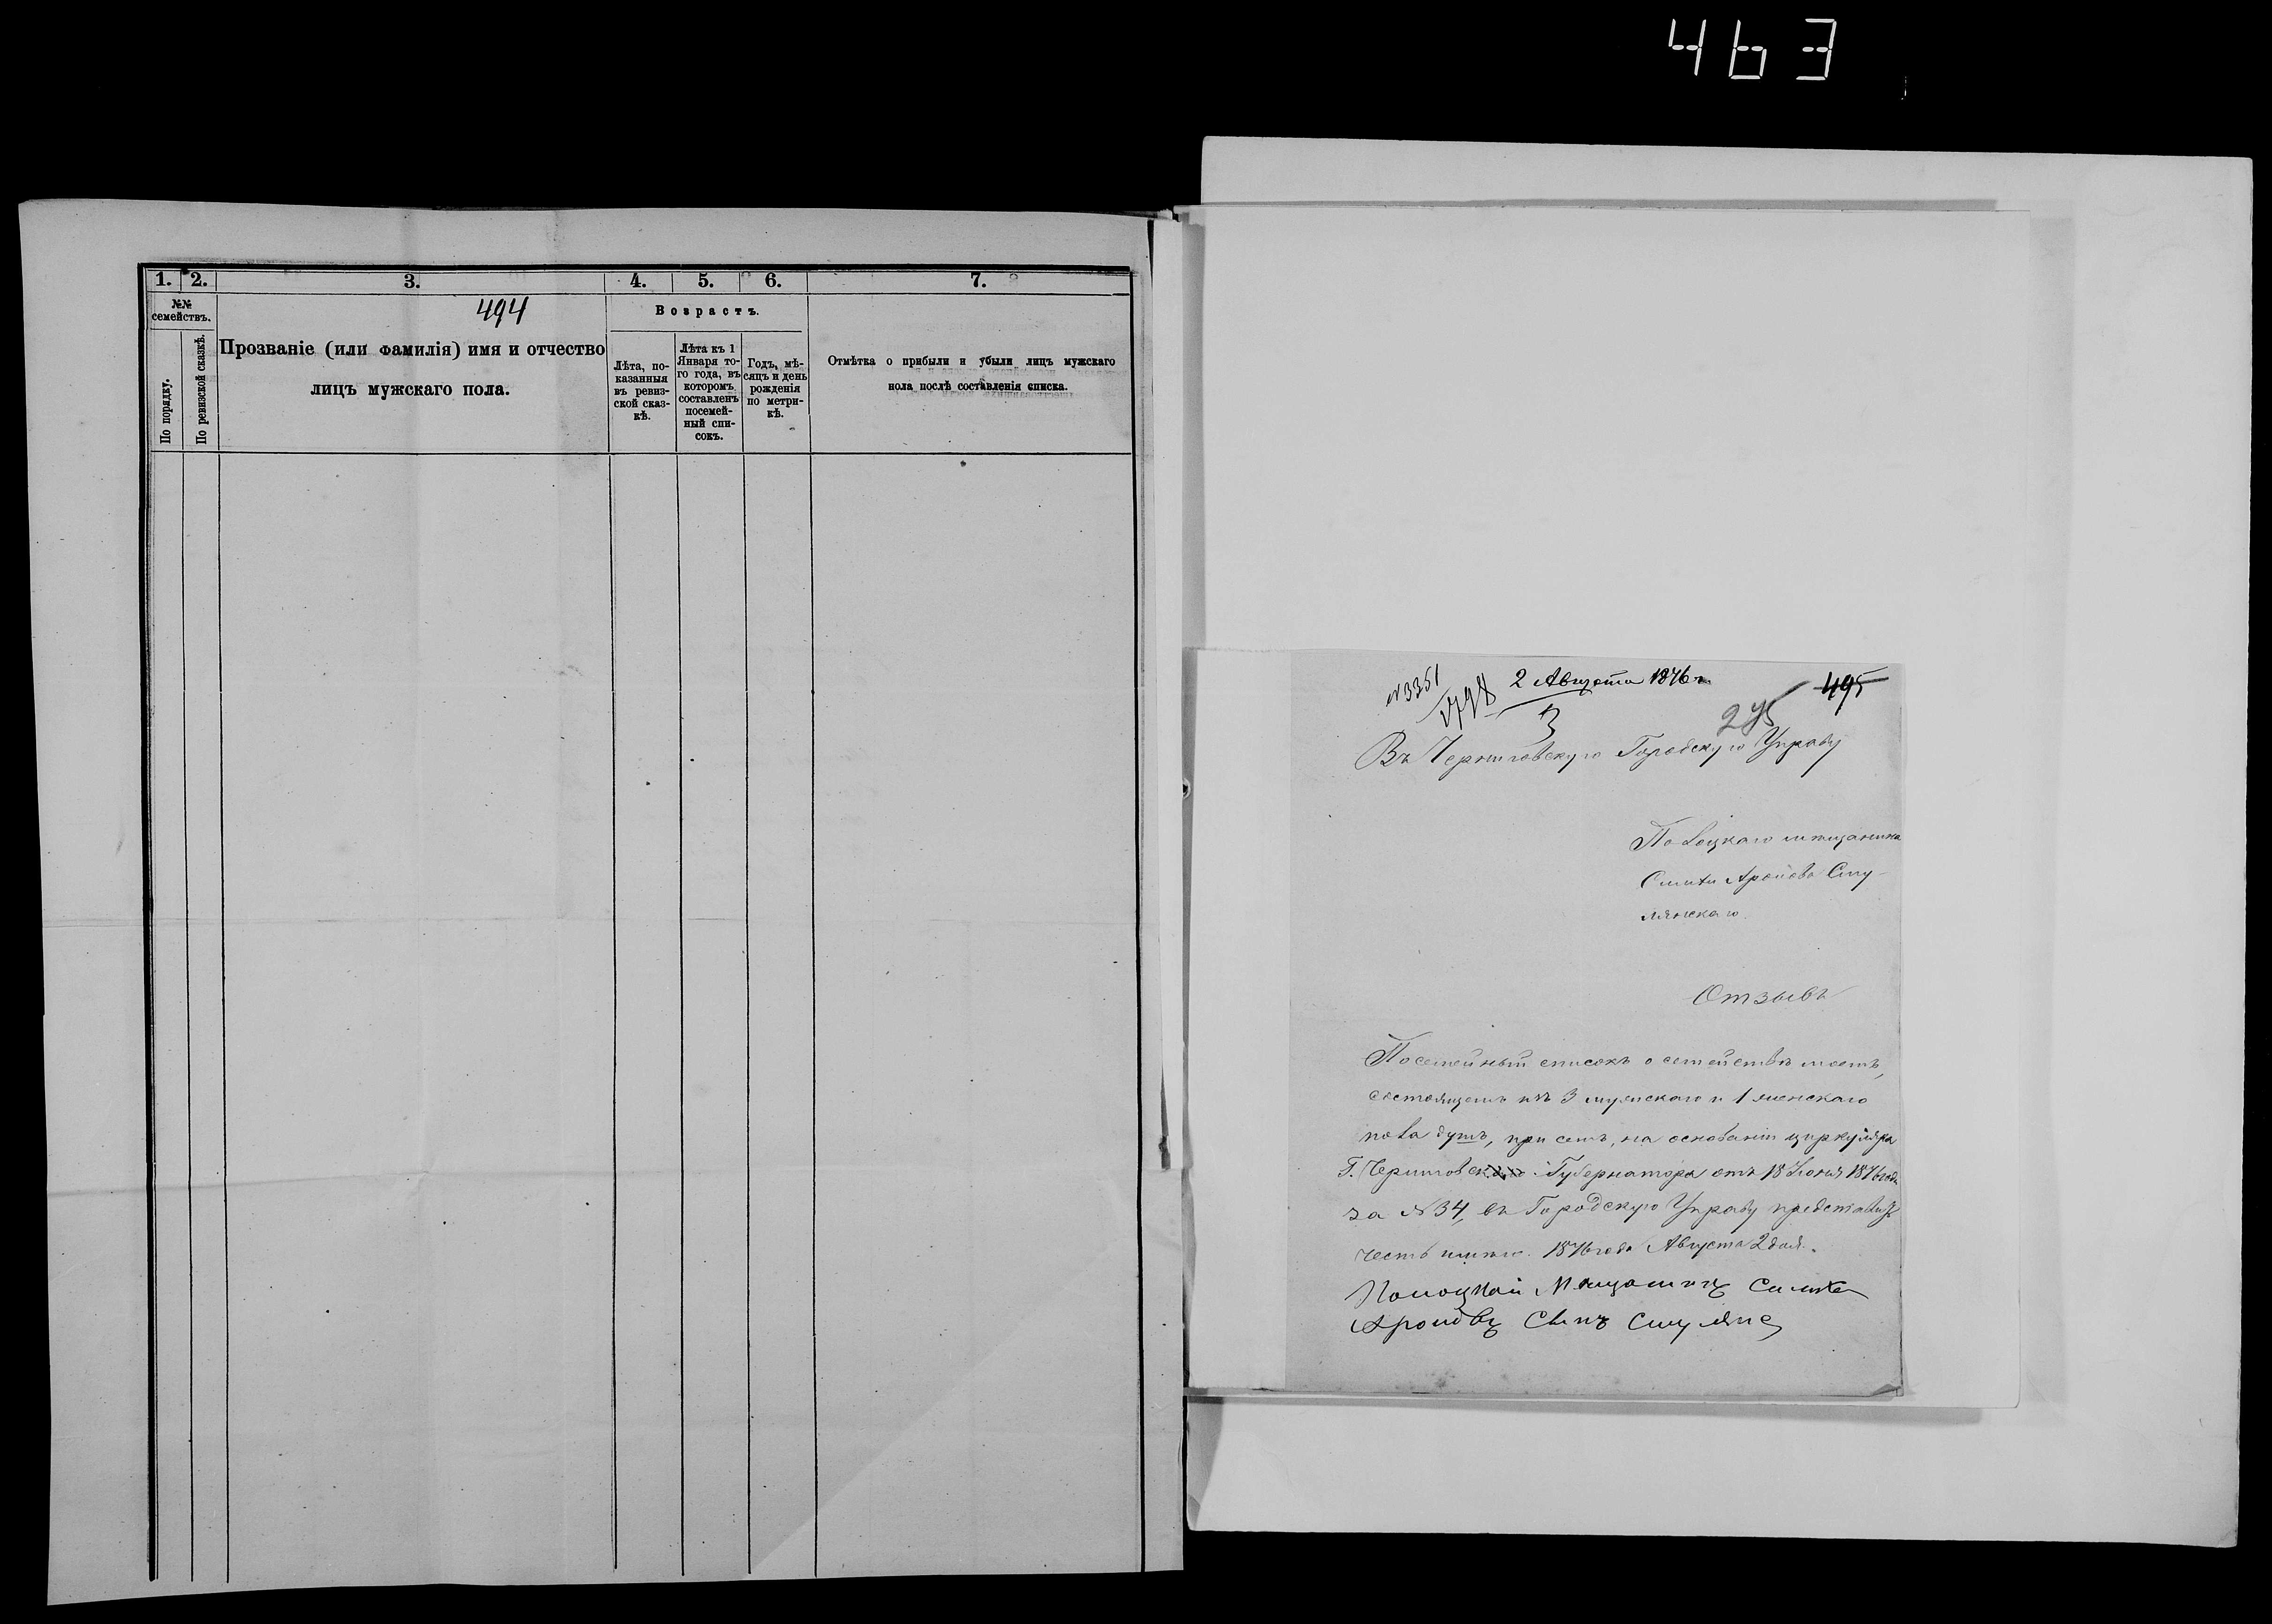 463
1. 2. 3. 4. 5. 6. 7.
№№ семействъ.
По порядку.
По ревизской сказкѣ.
494
Прозваніе (или фамилія) имя и отчество
лицъ мужскаго пола.
Возрастъ.
Лѣта, по-
казанныя
въ ревиз-
ской сказ-
кѣ.
Лѣта къ 1
Января то-
го года, въ
которомъ
составленъ
посемей-
ный спи-
сокъ.
Годъ, мѣ-
сяцъ и день
рожденія
по метри-
кѣ.
Отмѣтка о прибыли и убыли лицъ мужскаго
пола послѣ составленія списка.
№3351
2 Августа 1876 г.
495
3
Въ Черниговскую Городскую Управу
Полоцкаго мѣщанина
Аронова Сму-
лянскаго
Отзывъ
Посемейный списокъ о семействѣ моемъ,
состоящемъ изъ 3 мужскаго и 1 женскаго
пола душъ, при семъ, на основаніи циркуляра
Г. Черниговскаго Губернатора отъ 18 Іюня 1876 года
за №34, въ Городскую Управу представить
честь имѣю. 1876 года Августа 2 дня.
Полоцкой Мещанинъ
Ароновъ Сынъ